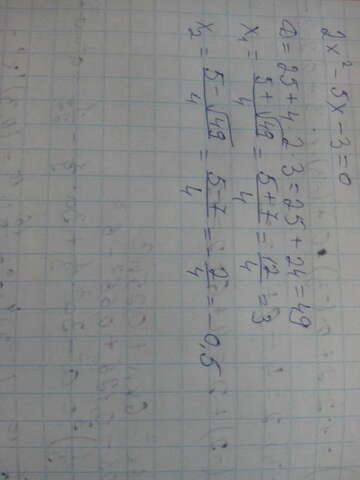 2x² - 5x - 3 = 0
D = 25 + 4 · 2 · 3 = 25 + 24 = 49
x₁ = (5 + √49)/4 = (5 + 7)/4 = 12/4 = 3
x₂ = (5 - √49)/4 = (5 - 7)/4 = - 2/4 = - 0,5